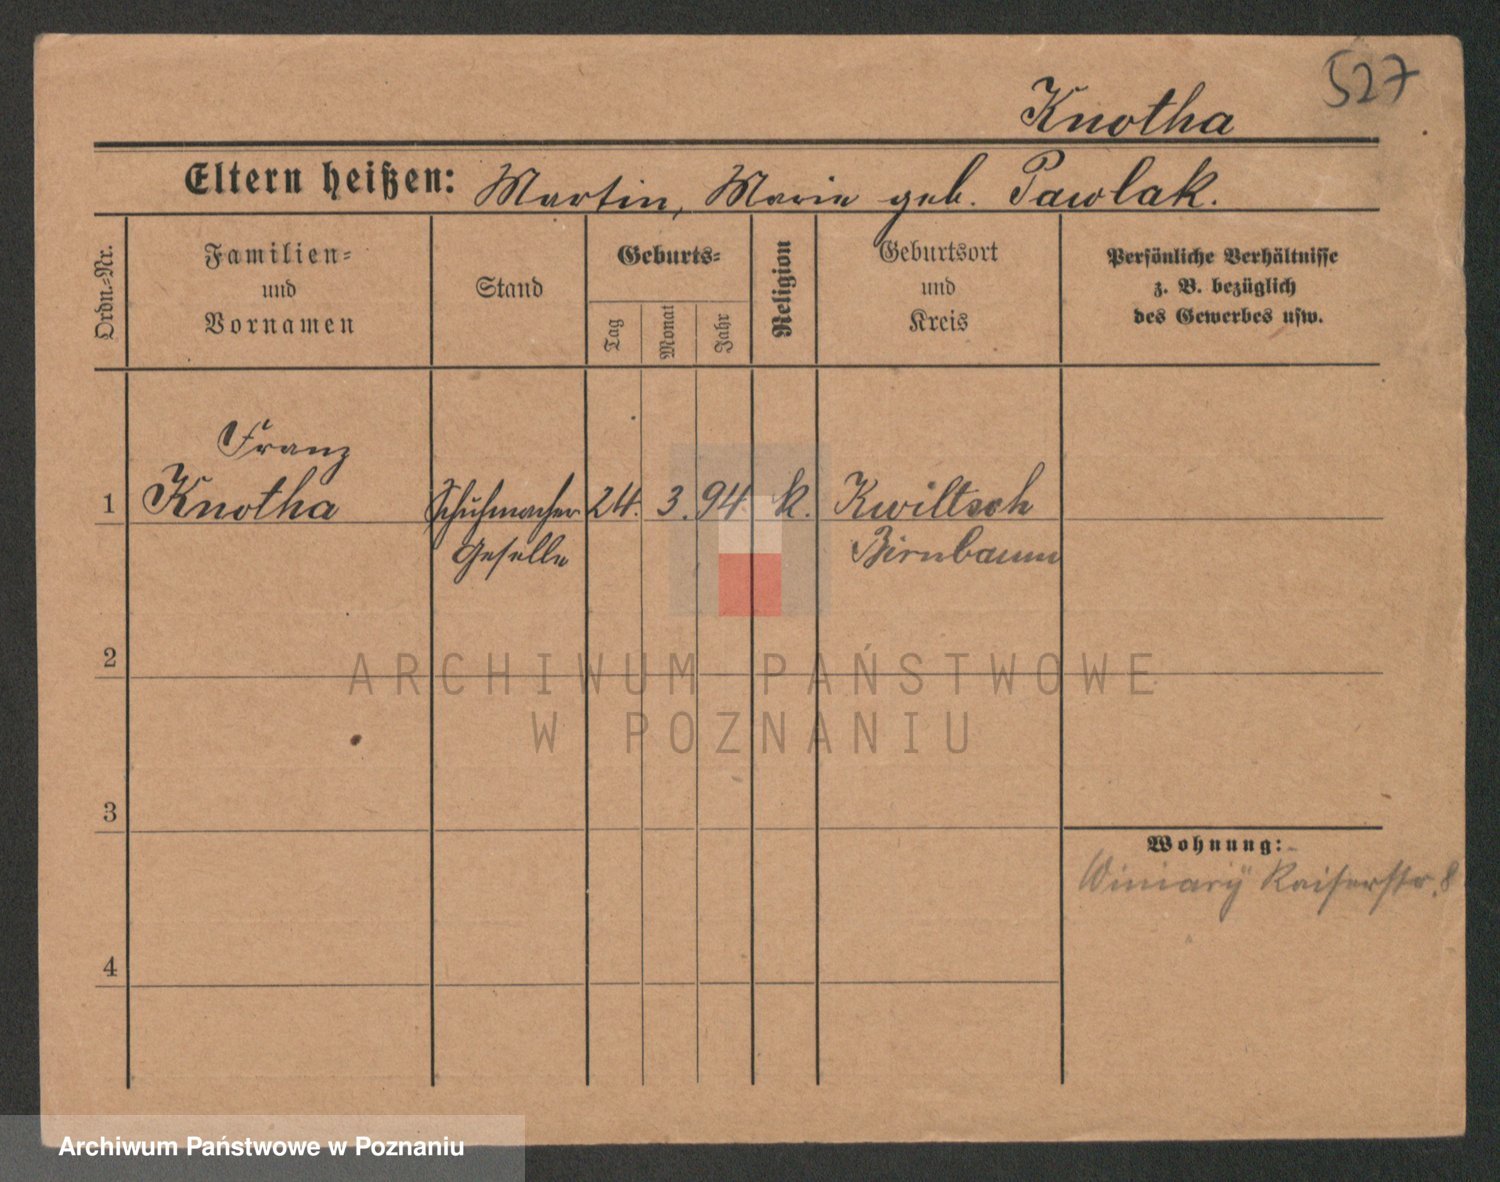 527
Knotha
Eltern heißen: Martin, Marie geb. Pawlak.
Ordn.=Nr.
Familien=
und
Vornamen
Stand
Geburts=
Tag
Monat
Jahr
Religion
Geburtsort
und
Kreis
Persönliche Verhältnisse
z. B. bezüglich
des Gewerbes usw.
Franz
1 Knotha Schuhmacher 24. 3. 94. k. Kwiltsch
Geselle Birnbaum
2
ARCHIWUM PAŃSTWOWE
W POZNANIU
3
Wohnung:
Winiary Kaiserstr. 8
4
Archiwum Państwowe w Poznaniu